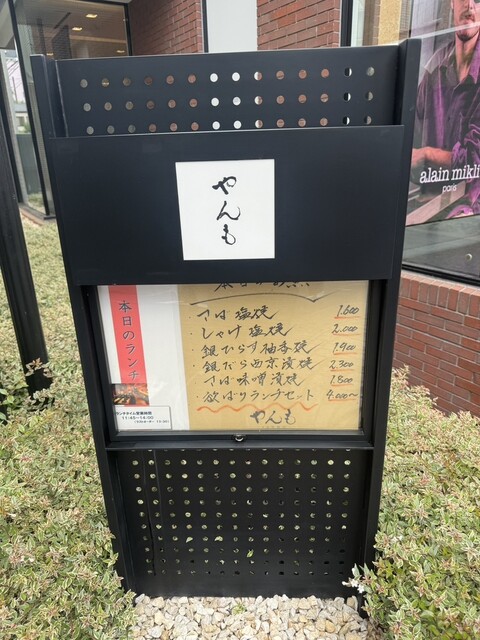 やんも
alain mikli
paris
本日のランチ
・さば塩焼 1.600
・しゃけ塩焼 2.000
・銀ひらす柚香焼 1.900
・銀だら西京漬焼 2.300
・さば味噌漬焼 1.800
・欲ばりランチセット 4.000〜
やんも
ランチタイム営業時間
11:45〜14:00